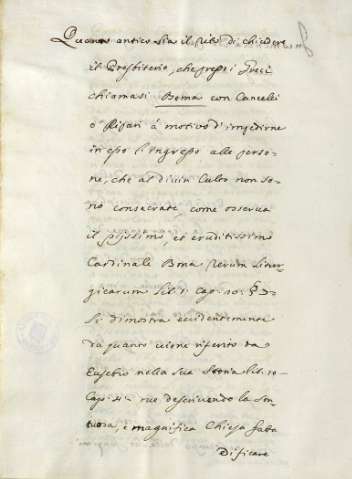 Quanto antico sia il rito di chiudere
il Presbiterio, che presso i Greci
chiamasi Bema con Cancelli
o Ripari à motivo d'impedirne
in esso l'ingresso alle perso-
ne, che al divin Culto non so-
no consacrate, come osserva
il piissimo, et eruditissimo
Cardinale Bona Rerum Litur-
gicarum lib. 1. Cap. 20. §. 3.
Si dimostra evidentemente
da quanto viene riferito da
Eusebio nella sua Storia lib. 10.
Cap. 4. ove descrivendo la son-
tuosa, e magnifica Chiesa fatta
Dificare